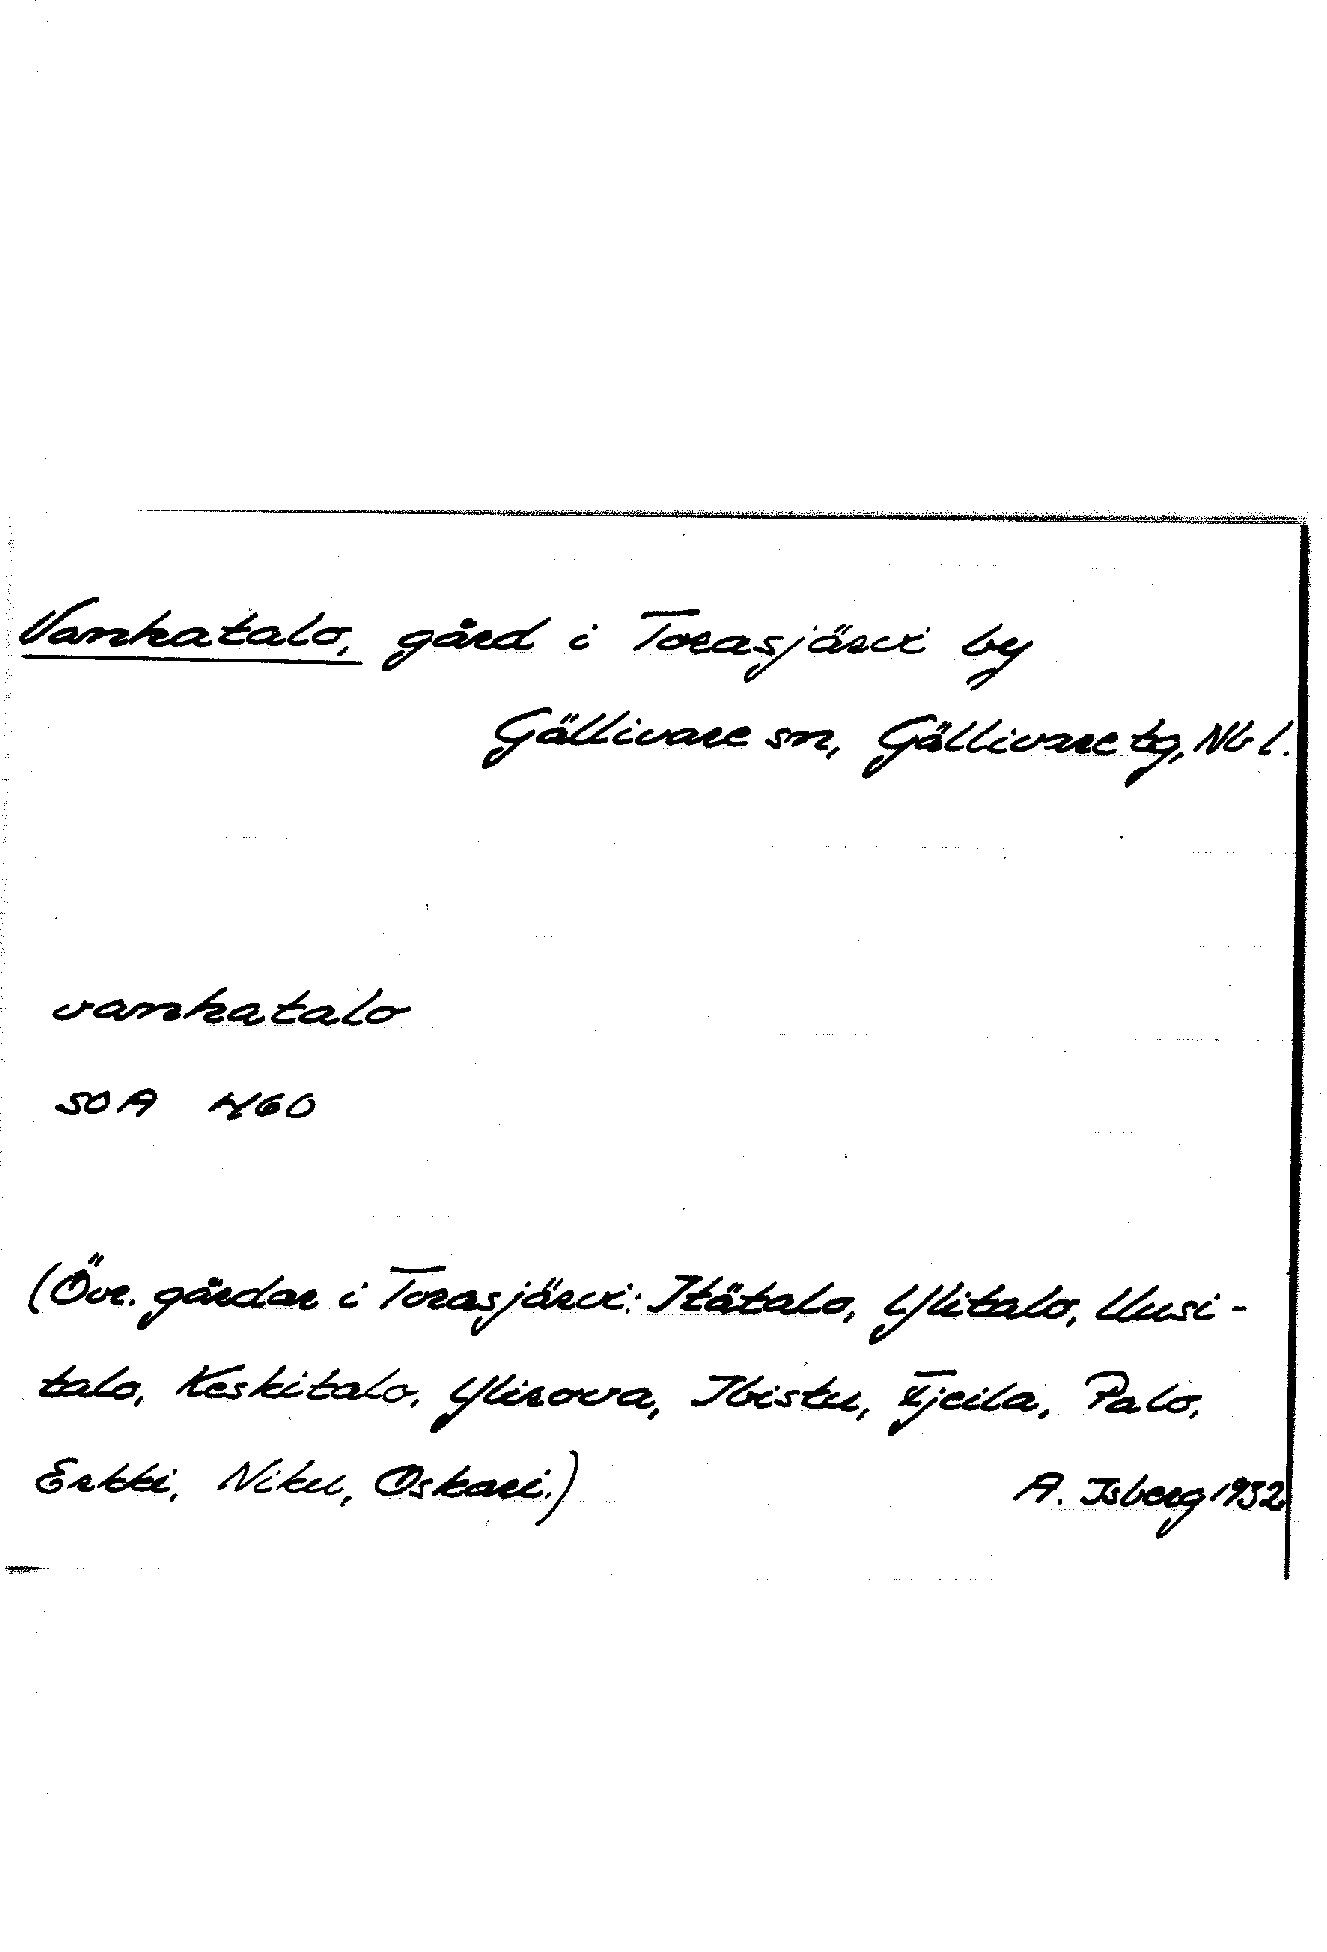 Vanhatalo, gård i Torasjärvi by
Gällivare sn, Gällivare tg, Nb l.
vanhatalo
SOA 4/60
(Övr. gårdar i Torasjärvi: Itätalo, Ylitalo, Uusi-
talo, Keskitalo, Ylirova, Ibistu, Fjeila, Palo,
Erkki, Niku, Oskari.)
A. Isberg 1932